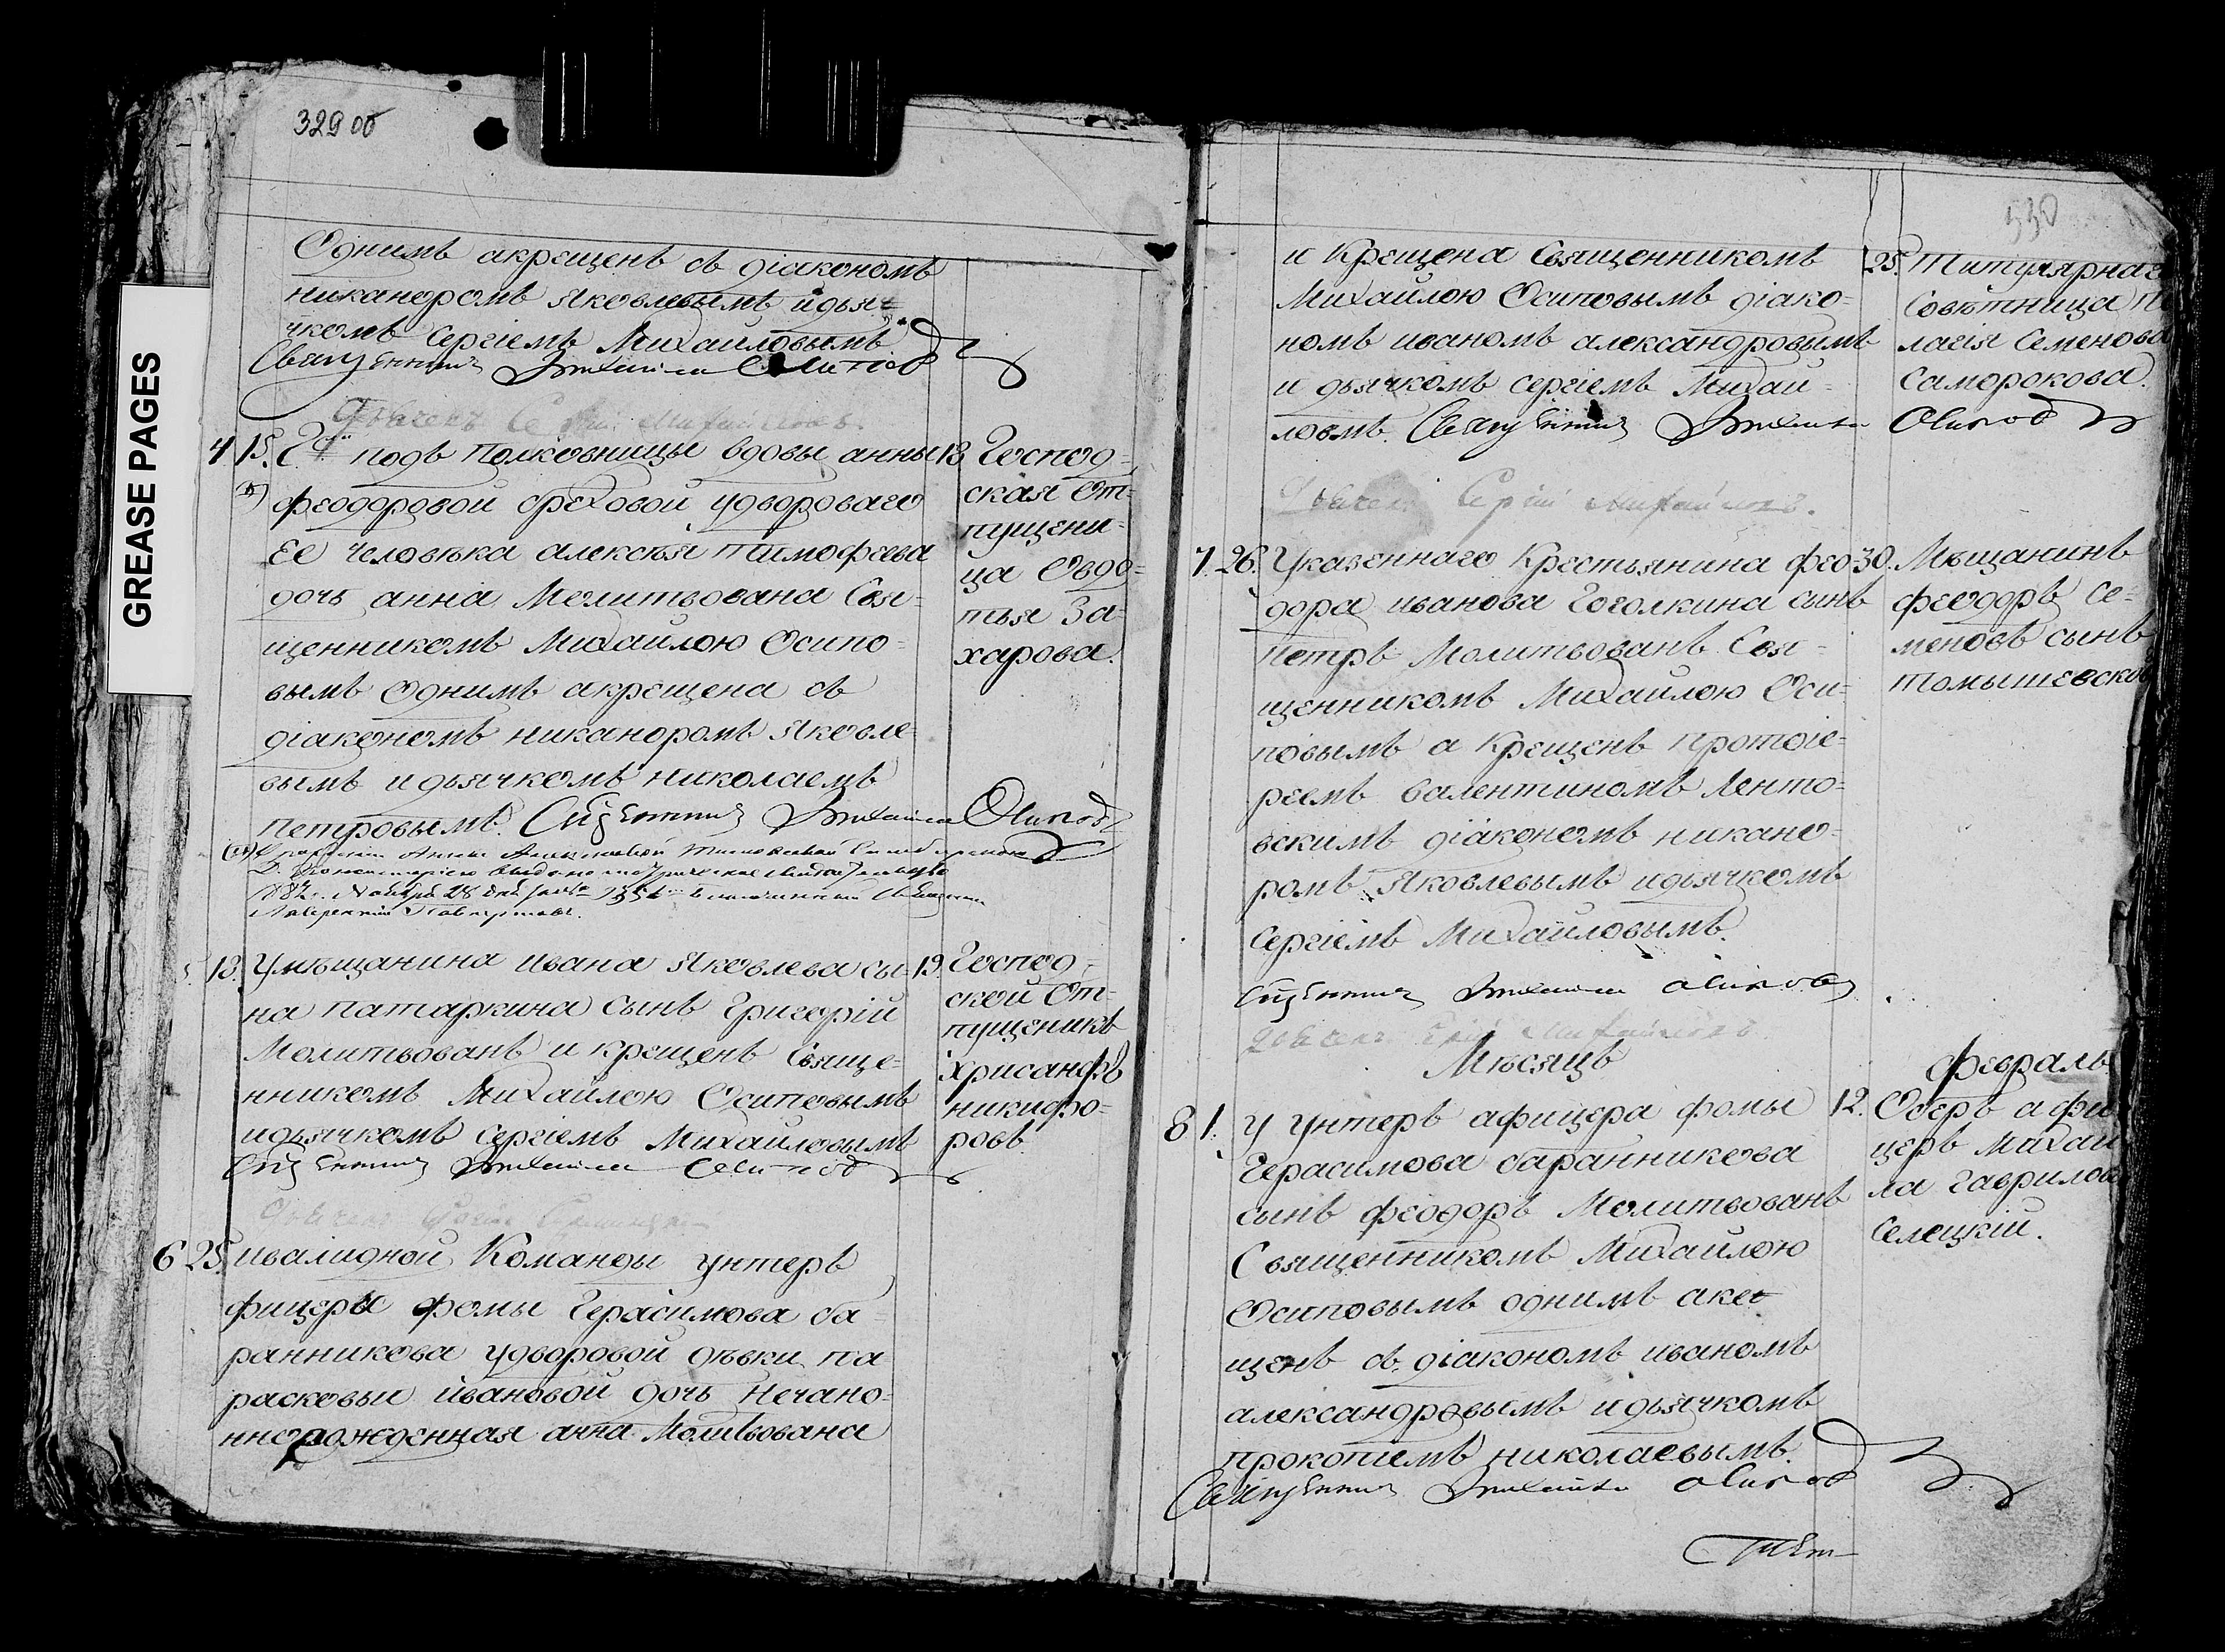 GREASE PAGES
329 об
Однимъ акрещенъ съ діакономъ
никаноромъ яковлевымъ идья=
чкомъ Сергіемъ Михайловымъ
Священникъ Михаила Осиповъ
Дьячекъ Сергій Михайловъ.
4 15. подъ Полковницы вдовы анны
феодоровой ореховой удвороваго
Ее человѣка алексѣя тимофеева
дочь анна Молитвована Свя=
щенникомъ Михайлою Осипо=
вымъ Однимъ акрещена съ
діакономъ никаноромъ Яковле=
вымъ идьячкомъ николаемъ
петровымъ. Священникъ Михаила Осиповъ
13 Господ=
ская От=
пущени=
ца Овдо=
тья За=
харова.
18. Умѣщанина ивана Яковлева сы=
на патаркина сынъ Григорій
Молитвованъ и крещенъ Свяще=
нникомъ Михайлою Осиповымъ
идьячкомъ Сергіемъ Михайловымъ
Священникъ Михаила Осиповъ
19. Господ=
ской От=
пущеникъ
хрисанфъ
никифо=
ровъ.
Дьячекъ
6 25. ивалидной Команды унтеръ
фицера фомы Герасимова ба=
ранникова удворовой дѣвки па
расковьи ивановой дочь нечано=
ннорожденная анна Молитвована
530
и Крещена Священникомъ
Михайлою Осиповымъ діако=
номъ иваномъ александровымъ
и дьячкомъ сергіемъ Михай=
ловмъ. Священникъ Михаила Осиповъ
25. Титулярная
Совѣтница П
лагія Семенова
Саморокова.
Дьячекъ Сергій Михайловъ.
7. 26. Указеннаго Крестьянина фео
дора иванова Гоголкина сынъ
петръ Молитвованъ Свя=
щенникомъ Михайлою Оси=
повымъ а Крещенъ протоіе=
реемъ валентиномъ Ленто=
вскимъ діакономъ никано=
ромъ Яковлевымъ идьячкомъ
Сергіемъ Михайловымъ.
Священникъ Михаила Осиповъ
30. Мѣщанинъ
феодоръ Се=
меновъ сынъ
томышевской
Дьячекъ Сергій Михайловъ
Мѣсяцъ февраль
8 1. У Унтеръ афицера фомы
Герасимова баранникова
сынъ феодоръ Молитвованъ
Священникомъ Михайлою
Осиповымъ однимъ акре
щенъ съ діакономъ иваномъ
александровымъ идьячкомъ
прокопіемъ николаевымъ.
Священникъ Михаила Осиповъ
12. Оберъ афи
церъ Михаи
ла гаврилов
Селецкій.